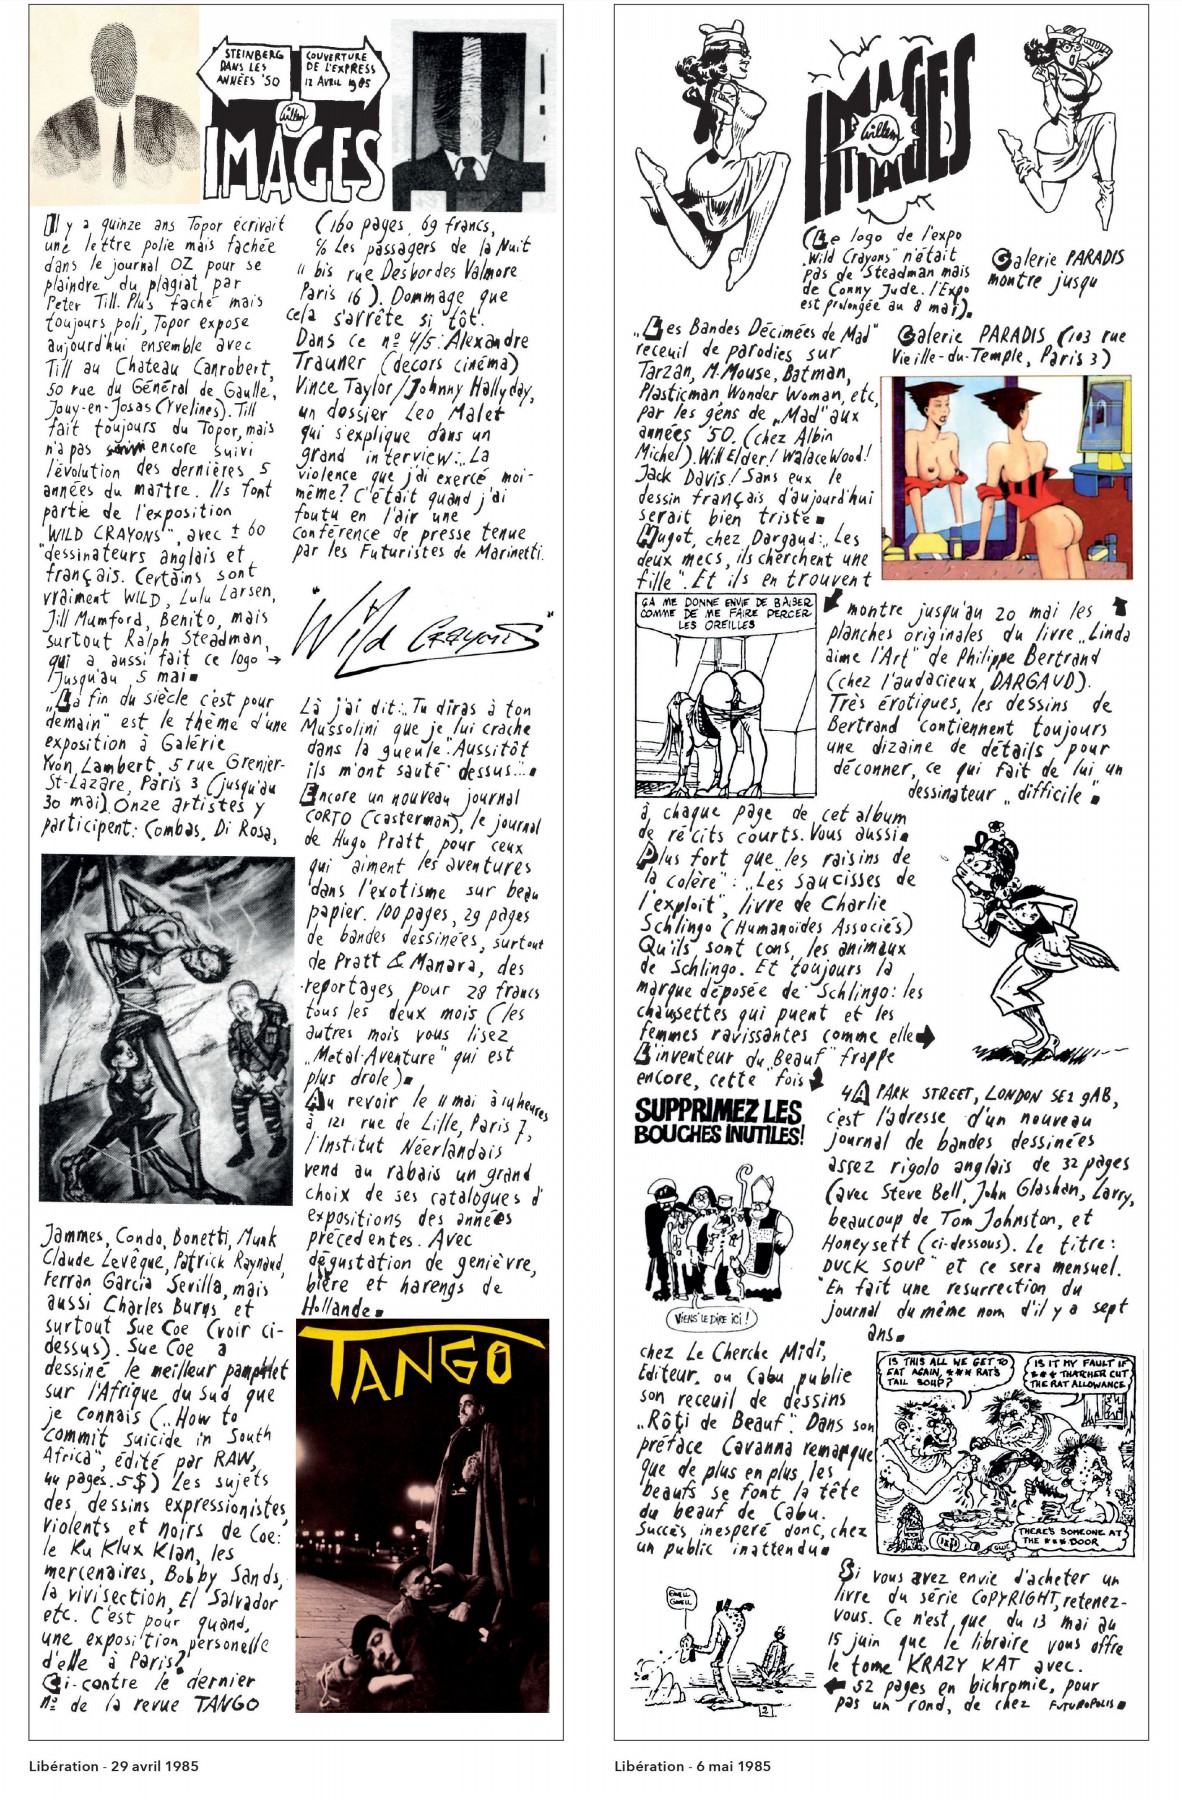 STEINBERG
DANS LES
ANNÉES '50
COUVERTURE
DE L'EXPRESS
12 AVRIL 1985
Willem
IMAGES
Il y a quinze ans Topor écrivait
une lettre polie mais fachée
dans le journal OZ pour se
plaindre du plagiat par
Peter Till. Plus faché mais
toujours poli, Topor expose
aujourd'hui ensemble avec
Till au Chateau Canrobert,
50 rue du Général de Gaulle,
Jouy-en-Josas (Yvelines). Till
fait toujours du Topor, mais
n'a pas encore suivi
l'évolution des dernières 5
années du maître. Ils font
partie de l'exposition
"WILD CRAYONS", avec ± 60
dessinateurs anglais et
français. Certains sont
vraiment WILD, Lulu Larsen,
Jill Mumford, Benito, mais
surtout Ralph Steadman,
qui a aussi fait ce logo →
Jusqu'au 5 mai■
"La fin du siècle c'est pour
demain" est le thème d'une
exposition à Galérie
Yvon Lambert, 5 rue Grenier-
St-Lazare, Paris 3 (jusqu'au
30 mai). Onze artistes y
participent: Combas, Di Rosa,
Jammes, Condo, Bonetti, Munk
Claude Levêque, Patrick Raynaud,
Ferran Garcia Sevilla, mais
aussi Charles Burns et
surtout Sue Coe (voir ci-
dessus). Sue Coe a
dessiné le meilleur pamphlet
sur l'Afrique du Sud que
je connais („How to
commit suicide in South
Africa", édité par RAW,
44 pages. 5$) Les sujets
des dessins expressionistes,
violents et noirs de Coe:
le Ku Klux Klan, les
mercenaires, Bobby Sands,
la vivisection, El Salvador
etc. C'est pour quand,
une exposition personelle
d'elle à Paris?
Ci-contre le dernier
nº de la revue TANGO
(160 pages, 69 francs,
% Les passagers de la Nuit
11 bis rue Desbordes Valmore
Paris 16). Dommage que
cela s'arrête si tôt.
Dans ce nº 4/5: Alexandre
Trauner (decors cinéma)
Vince Taylor/Johnny Hallyday,
un dossier Leo Malet
qui s'explique dans un
grand interview: „La
violence que j'ai exercé moi-
même? C'était quand j'ai
foutu en l'air une
conférence de presse tenue
par les Futuristes de Marinetti.
"Wild CRAYONS"
Là j'ai dit: „Tu diras à ton
Mussolini que je lui crache
dans la gueule". Aussitôt
ils m'ont sauté dessus..."■
Encore un nouveau journal
CORTO (Casterman), le journal
de Hugo Pratt, pour ceux
qui aiment les aventures
dans l'exotisme sur beau
papier. 100 pages, 29 pages
de bandes dessinées, surtout
de Pratt & Manara, des
reportages pour 28 francs
tous les deux mois (les
autres mois vous lisez
„Metal-Aventure" qui est
plus drole)■
Au revoir le 11 mai à 14 heures
à 121 rue de Lille, Paris 7,
l'Institut Néerlandais
vend au rabais un grand
choix de ses catalogues d'
expositions des années
précédentes. Avec
dégustation de genièvre,
bière et harengs de
Hollande■
TANGO
Libération - 29 avril 1985
IMAGES
Willem
(Le logo de l'expo
„Wild Crayons" n'était
pas de Steadman mais
de Conny Jude. l'Expo
est prolongée au 8 mai).
Galerie PARADIS
montre jusqu
„Les Bandes Décimées de Mad"
receuil de parodies sur
Tarzan, M.Mouse, Batman,
Plasticman, Wonder Woman, etc,
par les gens de „Mad" aux
années '50. (chez Albin
Michel). Will Elder! Walace Wood!
Jack Davis! Sans eux le
dessin français d'aujourd'hui
serait bien triste■
Hugot, chez Dargaud: „Les
deux mecs, ils cherchent une
fille". Et ils en trouvent
ÇA ME DONNE ENVIE DE BAISER
COMME DE ME FAIRE PERCER
LES OREILLES
à chaque page de cet album
de récits courts. Vous aussi■
Plus fort que „les raisins de
la colère": „Les saucisses de
l'exploit", livre de Charlie
Schlingo (Humanoïdes Associés)
Qu'ils sont cons, les animaux
de Schlingo. Et toujours la
marque déposée de Schlingo: les
chaussettes qui puent et les
femmes ravissantes comme elle
L'inventeur du „Beauf" frappe
encore, cette fois
SUPPRIMEZ LES
BOUCHES INUTILES!
VIENS LE DIRE ICI!
chez Le Cherche Midi,
Editeur. ou Cabu publie
son receuil de dessins
„Rôti de Beauf". Dans son
préface Cavanna remarque
que de plus en plus, les
beaufs se font la tête
du beauf de Cabu.
Succès inesperé donc, chez
un public inattendu■
Galerie PARADIS (103 rue
Vieille-du-Temple, Paris 3)
montre jusqu'au 20 mai les
planches originales du livre „Linda
aime l'Art" de Philippe Bertrand
(chez l'audacieux, DARGAUD).
Très érotiques, les dessins de
Bertrand contiennent toujours
une dizaine de détails pour
déconner, ce qui fait de lui un
dessinateur „difficile"■
4A PARK STREET, LONDON SE1 9AB,
c'est l'adresse d'un nouveau
journal de bandes dessinées
assez rigolo anglais de 32 pages
(avec Steve Bell, John Glashan, Larry,
beaucoup de Tom Johnston, et
Honeysett (ci-dessous). Le titre:
„DUCK SOUP" et ce sera mensuel.
En fait une resurrection du
journal du même nom d'il y a sept
ans■
IS THIS ALL WE GET TO
EAT AGAIN, *** RAT'S
TAIL SOUP?
IS IT MY FAULT IF
*** THATCHER CUT
THE RAT ALLOWANCE
THERE'S SOMEONE AT
THE *** DOOR
Si vous avez envie d'acheter un
livre du série COPYRIGHT, retenez-
vous. Ce n'est que du 13 mai au
15 juin que le libraire vous offre
le tome KRAZY KAT avec.
52 pages en bichromie, pour
pas un rond, de chez FUTUROPOLIS■
2
Libération - 6 mai 1985